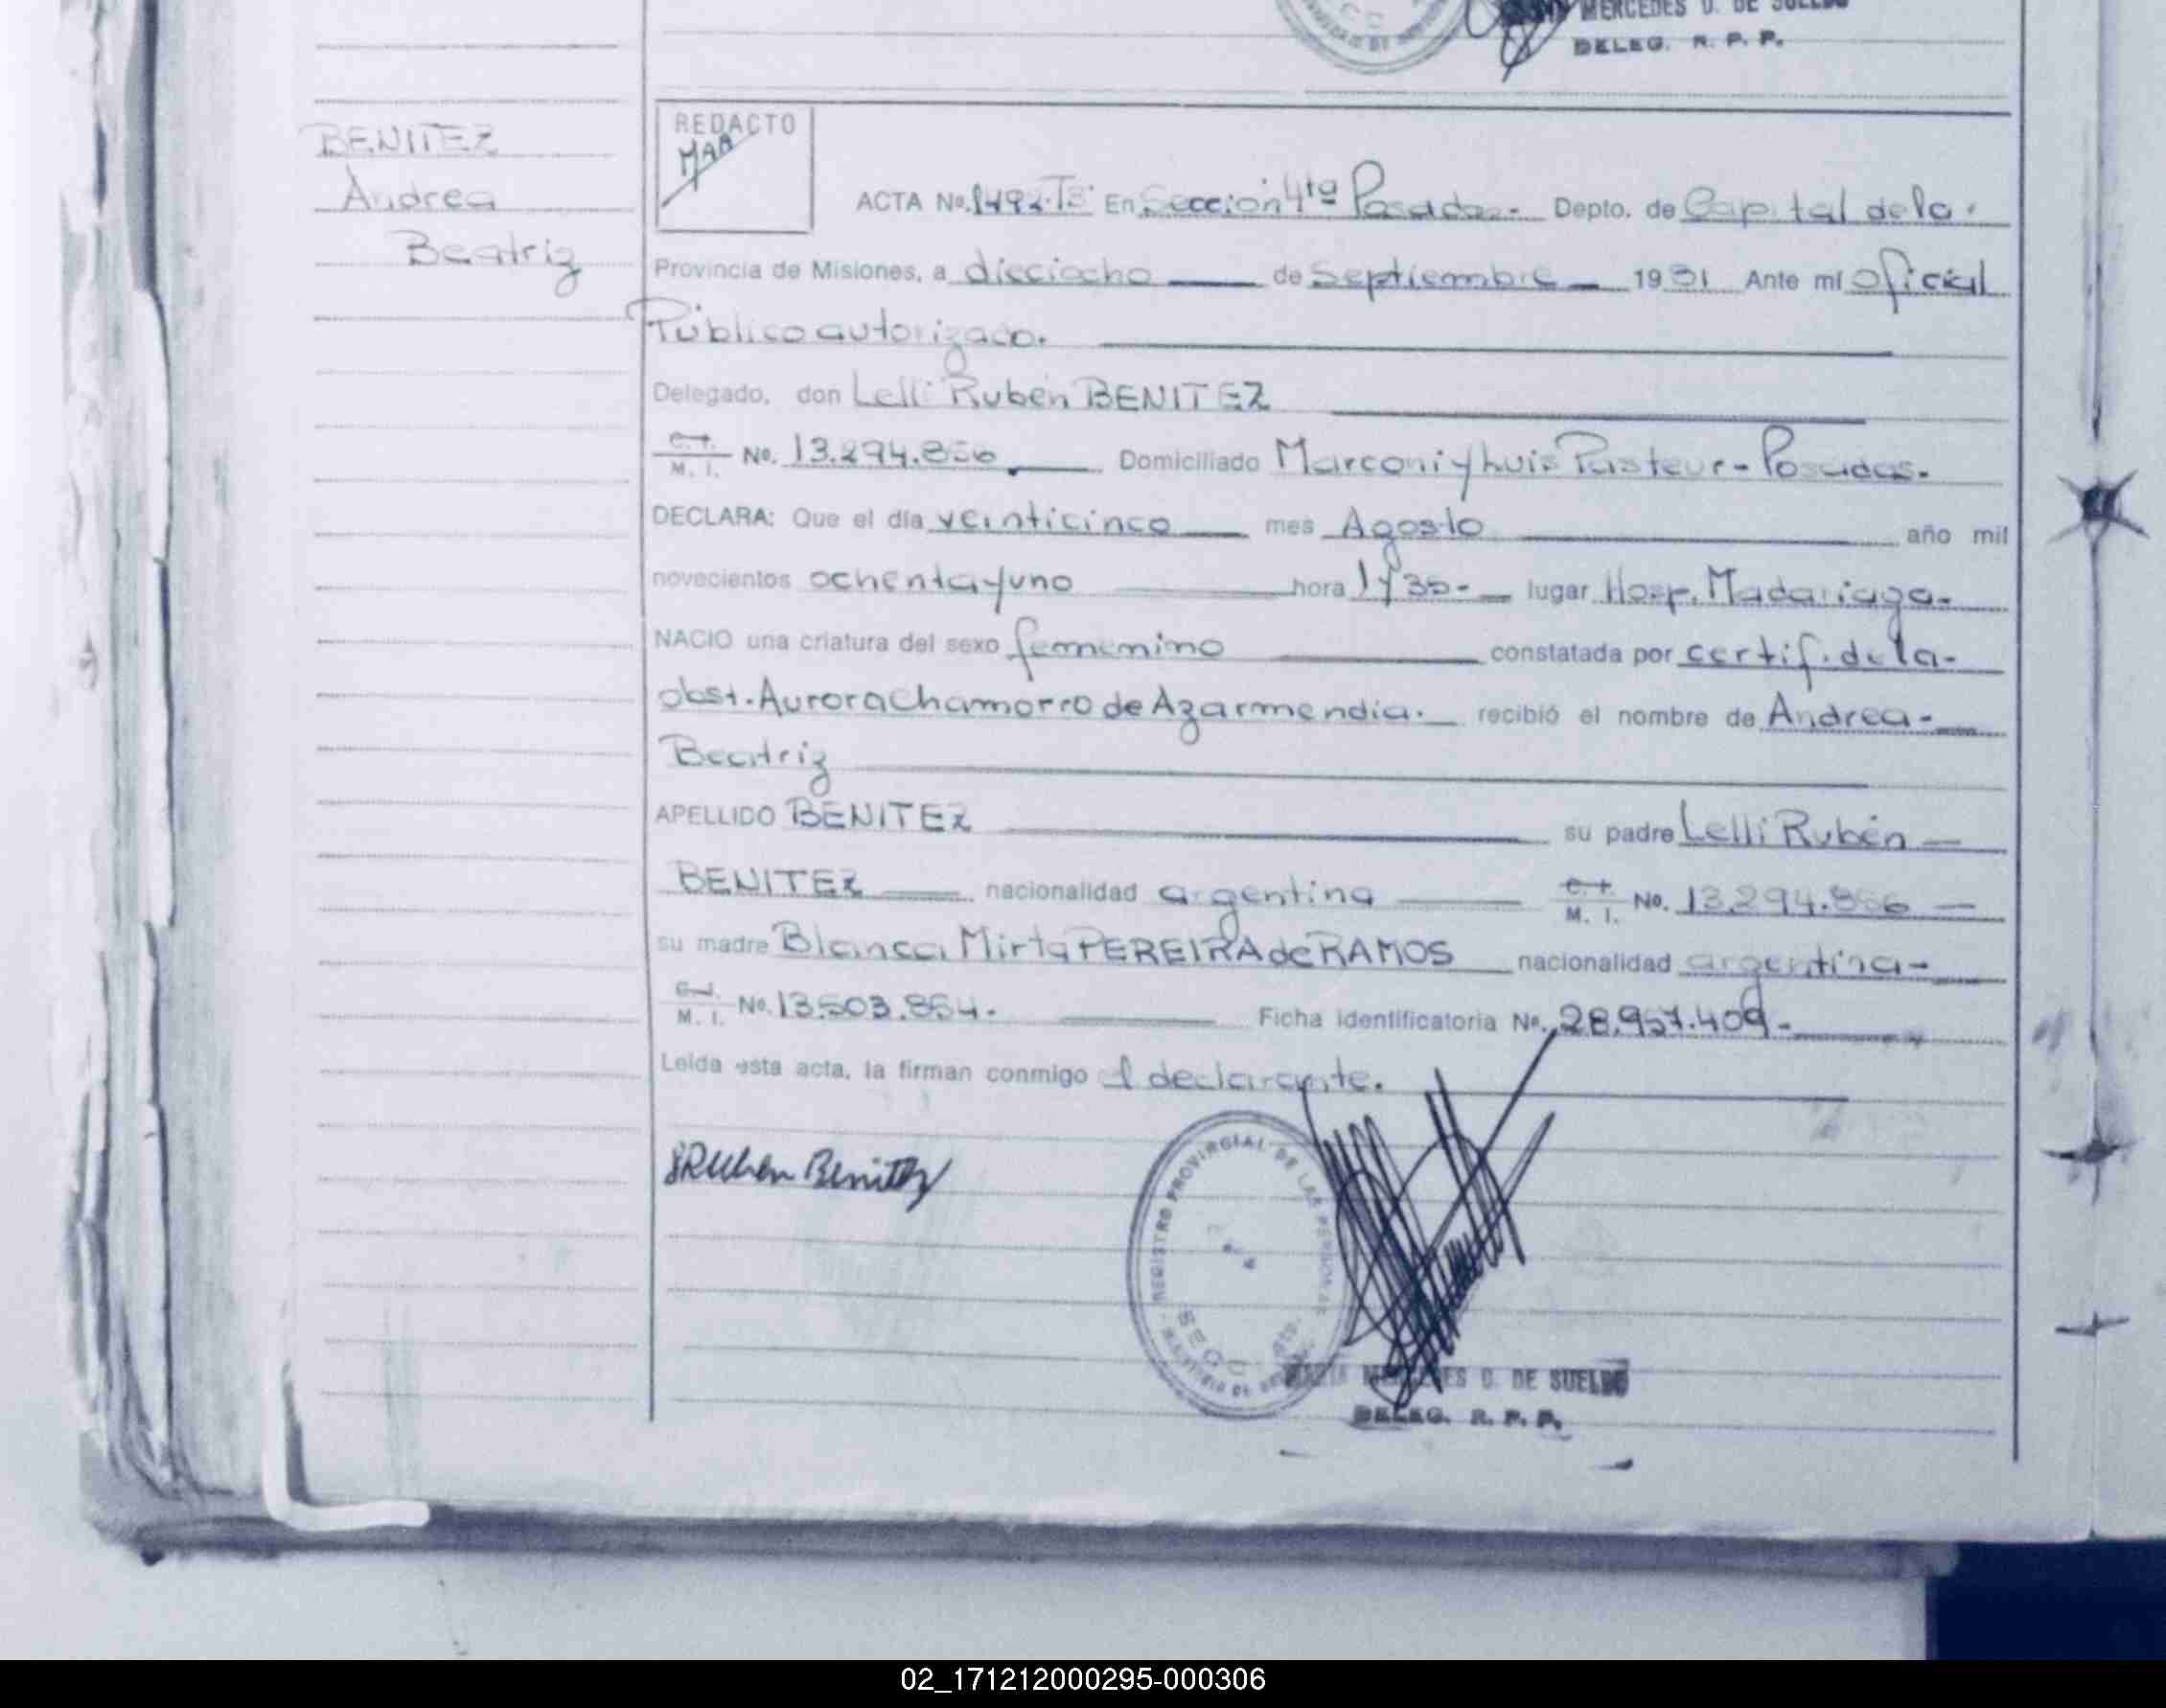 MERCEDES D. DE SUELDO
DELEG. R. P. P.
BENITEZ
Andrea
Beatriz
REDACTO
MAR
ACTA No. 1492.Tº En Sección 4ta Posadas.- Depto. de Capital de la.
Provincia de Misiones, a dieciocho de Septiembre 1981 Ante mí Oficial
Público autorizado.
Delegado, don Lelli Rubén BENITEZ
C.I. M. I. No. 13.294.856 Domiciliado Marconi y Luis Pasteur - Posadas.
DECLARA: Que el día veinticinco mes Agosto año mil
novecientos ochenta y uno hora 1 y 30- lugar Hosp. Madariaga-
NACIO una criatura del sexo femenino constatada por certif. de la-
obst. Aurora Chamorro de Azarmendia. recibió el nombre de Andrea-
Beatriz
APELLIDO BENITEZ su padre Lelli Rubén
BENITEZ nacionalidad argentina C.I. M. I. No. 13.294.856
su madre Blanca Mirta PEREIRA de RAMOS nacionalidad argentina-
C.I. M. I. No. 13.503.854. Ficha identificatoria No. 28.957.409-
Leída esta acta, la firman conmigo el declarante.
Ruben Benitez
REGISTRO PROVINCIAL DE LAS PERSONAS
DE SUELDO
DELEG. R. P. P.
02_171212000295-000306